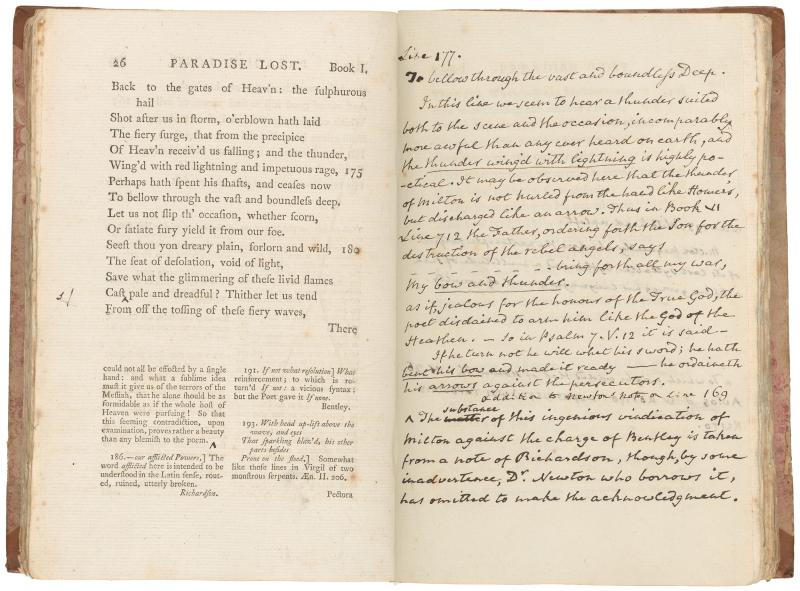 26 PARADISE LOST. Book I.
Back to the gates of Heav'n: the ſulphurous
hail
Shot after us in ſtorm, o'erblown hath laid
The fiery ſurge, that from the precipice
Of Heav'n receiv'd us falling; and the thunder,
Wing'd with red lightning and impetuous rage, 175
Perhaps hath ſpent his ſhafts, and ceaſes now
To bellow through the vaſt and boundleſs deep.
Let us not ſlip th' occaſion, whether ſcorn,
Or ſatiate fury yield it from our foe.
Seeſt thou yon dreary plain, forlorn and wild, 180
The ſeat of deſolation, void of light,
Save what the glimmering of theſe livid flames
s/ Caſt pale and dreadful? Thither let us tend
From off the toſſing of theſe fiery waves,
There
could not all be effected by a ſingle
hand: and what a ſublime idea
muſt it give us of the terrors of the
Meſſiah, that he alone ſhould be as
formidable as if the whole hoſt of
Heaven were purſuing! So that
this ſeeming contradiction, upon
examination, proves rather a beauty
than any blemiſh to the poem.
186.—our afflicted Powers,] The
word afflicted here is intended to be
underſtood in the Latin ſenſe, rout-
ed, ruined, utterly broken.
Richardſon.
191. If not what reſolution] What
reinforcement; to which is re-
turn'd If not: a vicious ſyntax;
but the Poet gave it If none.
Bentley.
193. With head up-lift above the
wave, and eyes
That ſparkling blaz'd, his other
parts beſides
Prone on the flood.] Somewhat
like thoſe lines in Virgil of two
monſtrous ſerpents. Æn. II. 206.
Pectora
Line 177.
To bellow through the vast and boundleſs Deep.
In this line we seem to hear a thunder suited
both to the scene and the occasion, incomparably
more awful than any ever heard on earth, and
the thunder wing'd with lightning is highly po-
-etical. It may be observed here that the thunder
of Milton is not hurled from the hand like Homers,
but discharged like an arrow. Thus in Book VI
Line 712 the Father, ordering forth the Son for the
destruction of the rebel angels, says
- - - - - - - - bring forth all my war,
My bow and thunder.
as if, jealous for the honour of the True God, the
poet disdained to arm him like the God of the
Heathen. — So in Psalm 7. V. 12 it is said —
If he turn not he will whet his sword; he hath
bent his bow and made it ready — he ordaineth
his arrows against the persecutors.
addition to Newtons note, on Line 169
^ The substance matter of this ingenious vindication of
Milton against the charge of Bentley is taken
from a note of Richardson, though, by some
inadvertence, Dr. Newton who borrows it,
has omitted to make the acknowledgment.